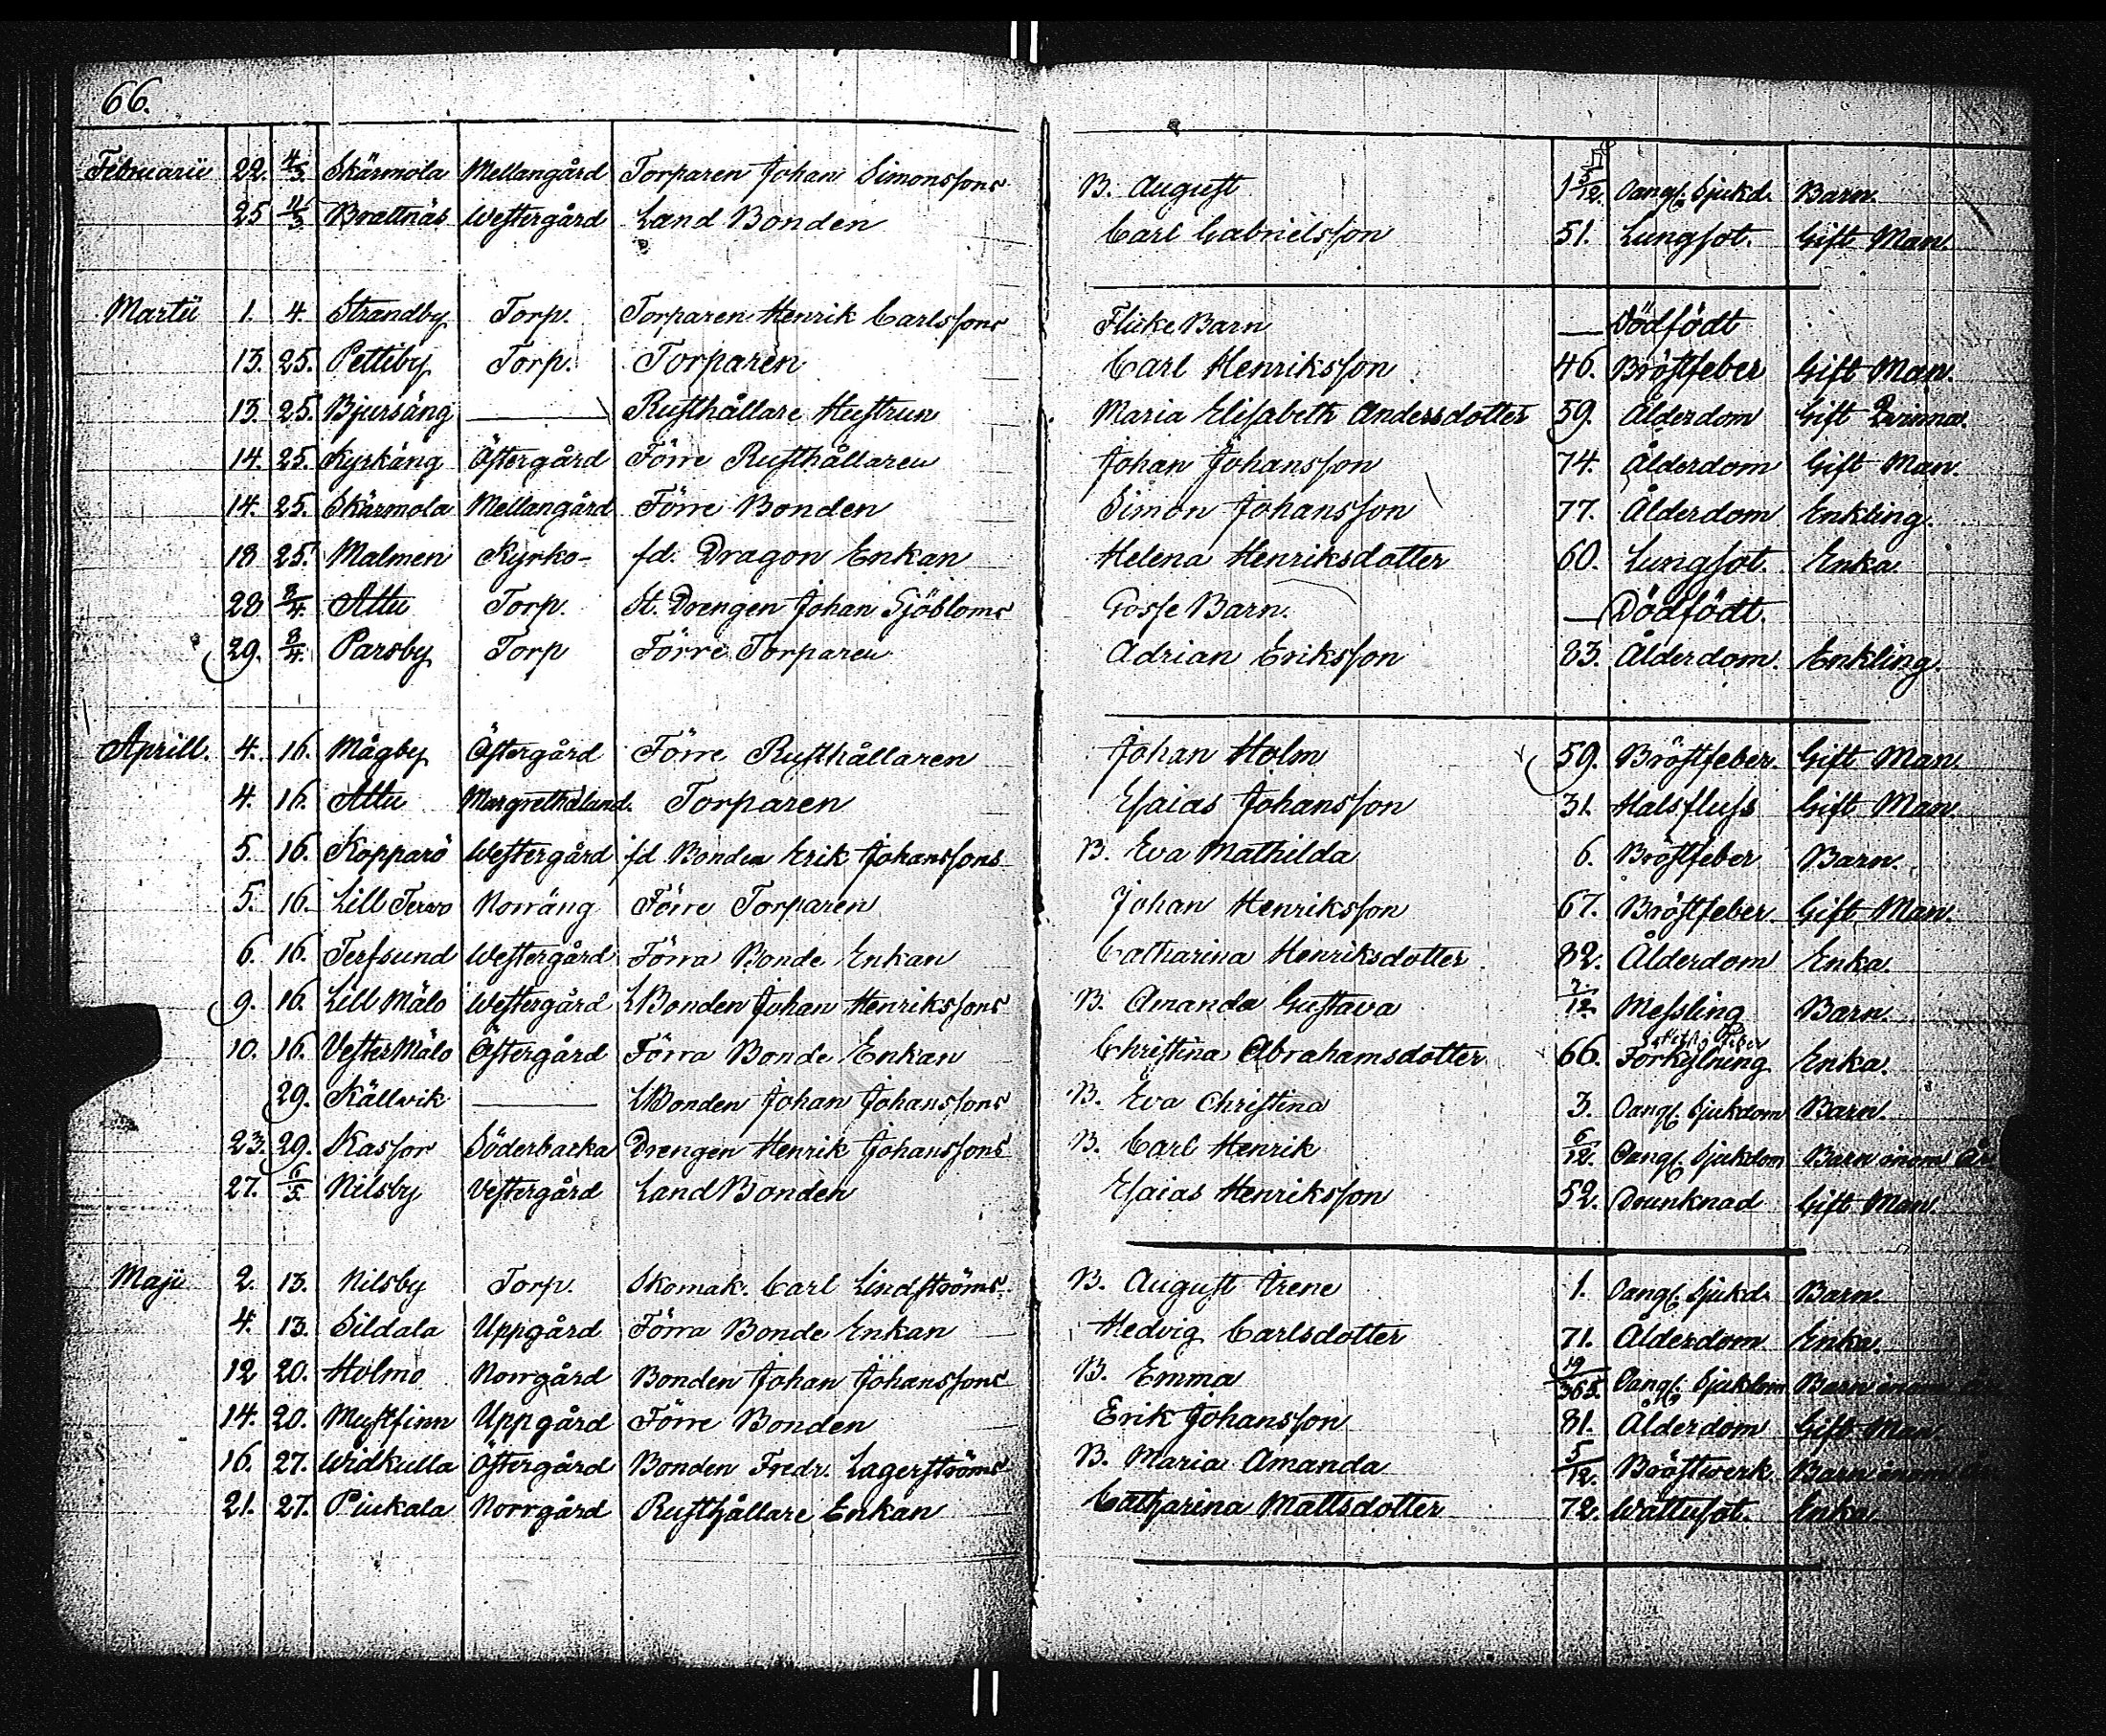 66.
Februarii 22. 4/3 Skärmola Mellangård Torparen Johan Simonssons B. August 1 5/12. Oangf. Sjukd. Barn.
25 11/3 Brattnäs Westergård Land Bonden Carl Gabrielsson 51. Lungsot. Gift Man.
Martii 1. 4. Strandby Torp. Torparen Henrik Carlssons Flicke Barn — Dödfödt
13. 25. Pettiby Torp. Torparen Carl Henriksson 46. Bröstfeber Gift Man.
13. 25. Bjursäng — Rusthållare Hustrun Maria Elisabeth Andersdotter 59. Ålderdom Gift Qvinna.
14. 25. Kyrkäng Östergård Förre Rusthållaren Johan Johansson 74. Ålderdom Gift Man.
14. 25. Skärmola Mellangård Förre Bonden Simon Johansson 77. Ålderdom Enkling.
18 25. Malmen Kyrko- fd. Dragon Enkan Helena Henriksdotter 60. Lungsot. Enka
28 8/4 Attu Torp. St. Drengen Johan Sjöbloms Gosse Barn. — Dödfödt.
29. 8/4. Parsby Torp Förre Torparen Adrian Eriksson 83. Ålderdom. Enkling.
Aprill. 4. 16. Mågby Östergård Förre Rusthållaren Johan Holm 59. Bröstfeber. Gift Man.
4. 16. Attu Margrethæland. Torparen Esaias Johansson 31. Halsfluss Gift Man.
5. 16. Kopparö Westergård fd Bonden Erik Johanssons B. Eva Mathilda 6. Bröstfeber Barn.
5. 16. Lill Terwo Norräng Förre Torparen Johan Henriksson 67. Bröstfeber. Gift Man.
6. 16. Terfsund Westergård Förra Bonde Enkan Catharina Henriksdotter 82. Ålderdom Enka.
9. 16. Lill Mälo Westergård LBonden Johan Henrikssons B. Amanda Gustava 7/12 Messling Barn.
10. 16. Vester Mälo Östergård Förra Bonde Enkan Christina Abrahamsdotter 66. Förkylning Enka.
29. Källvik — LBonden Johan Johanssons B. Eva Christina 3. Oangf. Sjukdom Barn.
23. 29. Kassor Söderbacka Drengen Henrik Johanssons B. Carl Henrik 6/12. Oangf. Sjukdom Barn inom år
27. 6/5 Nilsby Vestergård Land Bonden Esaias Henriksson 52. Drunknad Gift Man.
Maji 2. 13. Nilsby Torp. Skomak. Carl Lindströms. B. August Irene 1. Oangf. Sjukd. Barn.
4. 13. Sildala Uppgård Förra Bonde Enkan Hedvig Carlsdotter 71. Ålderdom Enka.
12 20. Holmo Norrgård Bonden Johan Johanssons B. Emma 19/365. Oangf. Sjukdom Barn inom år
14. 20. Mustfinn Uppgård Förre Bonden Erik Johansson 81. Ålderdom Gift Man.
16. 27. Widkulla Östergård Bonden Fredr. Lagerströms B. Maria Amanda 5/12. Bröstwerk Barn inom år
21. 27. Piukala Norrgård Rusthållare Enkan Catharina Mattsdotter 72. Wattusot. Enka